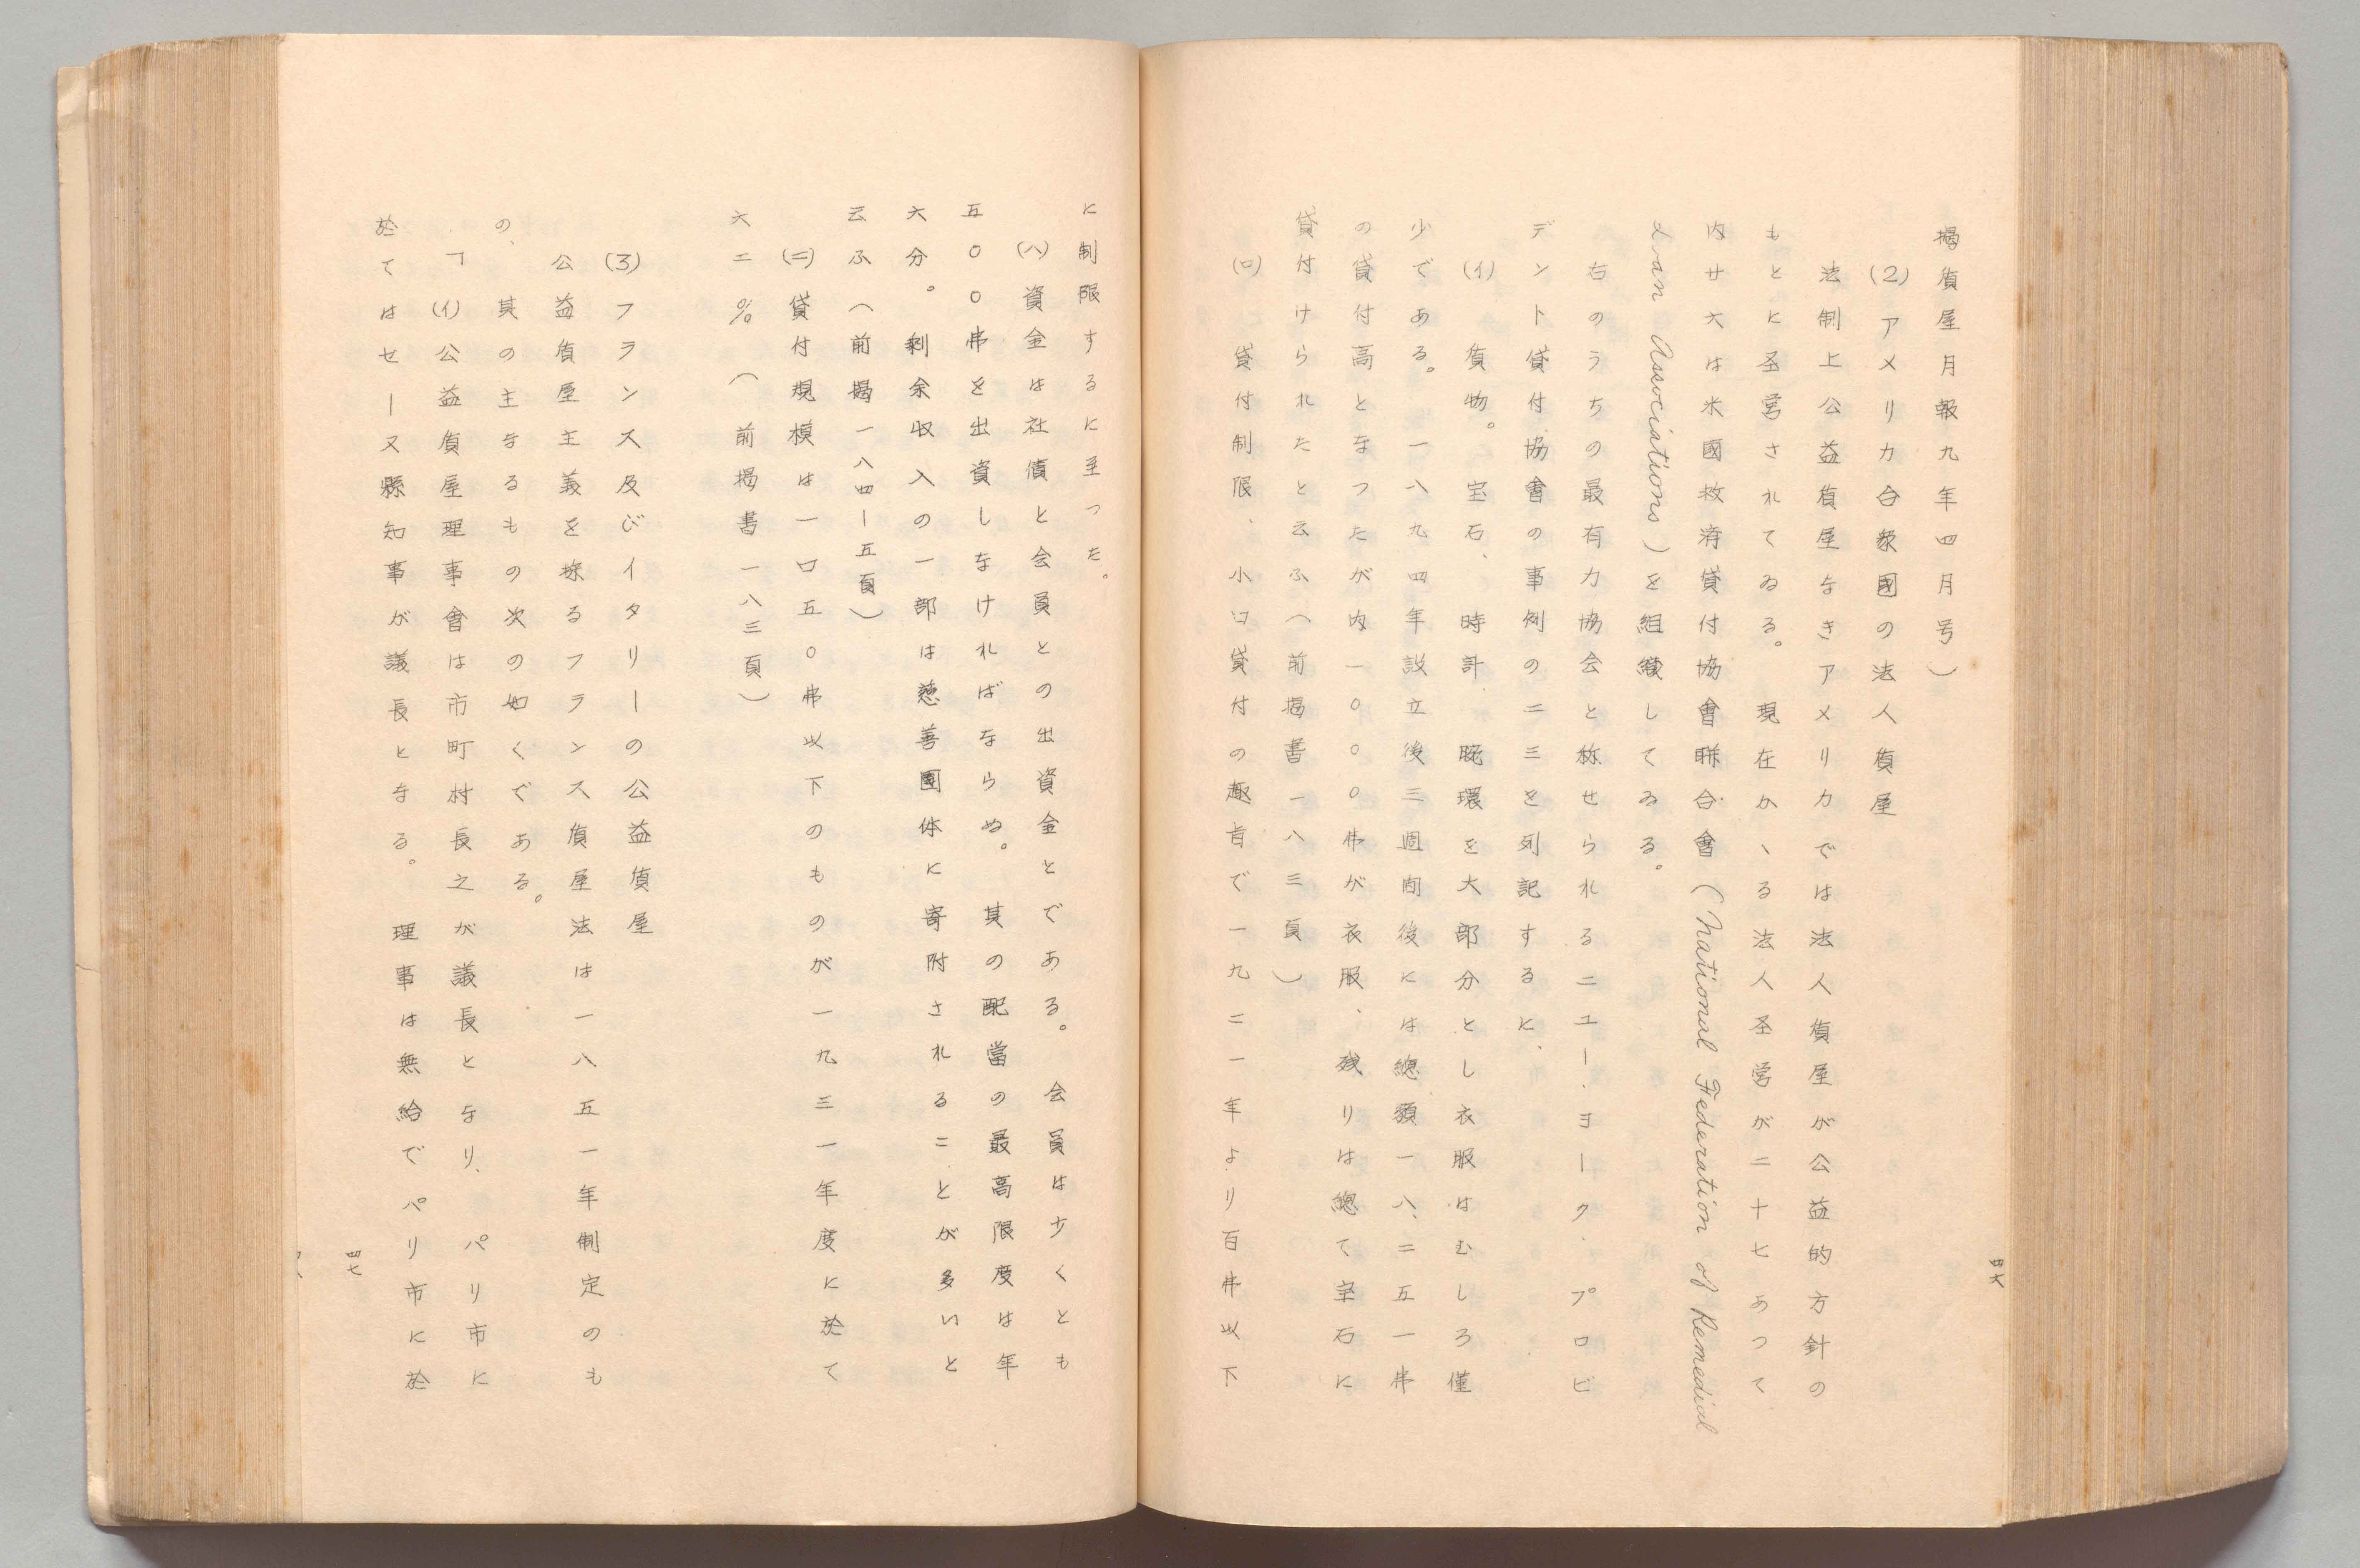 揭質屋月報九年四月号）
(2)アメリカ合衆國の法人質屋
法制上公益質屋なきアメリカでは法人質屋が公益的方針の
もとに圣営されてゐる。現在かゝる法人圣営が二十七あつて
内廿六は米國救済貸付協會聯合會（National Federation of Remedial
Loan Associations）を組織してゐる。
右のうちの最有力協会と称せられるニユー．ヨーク．プロビ
デント貸付協會の事例の二三を列記するに、
(イ)質物。宝石、時計、腕環を大部分とし衣服はむしろ僅
少である。一八九四年設立後三週間後には總額一八、二五一弗
の貸付高となつたが内一〇〇〇弗が衣服、残りは總て宝石に
貸付けられたと云ふ（前揭書一八三頁）
(ロ)貸付制限．小口貸付の趣旨で一九二一年より百弗以下
四六
に制限するに至つた。
(ハ)資金は社債と会員との出資金とである。会員は少くとも
五〇〇弗を出資しなければならぬ。其の配當の最高限度は年
六分。剰余収入の一部は慈善團体に寄附されることが多いと
云ふ（前揭一八四ー五頁）
(ニ)貸付規模は一口五〇弗以下のものが一九三一年度に於て
六二％（前揭書一八三頁）
(3)フランス及びイタリーの公益質屋
公益質屋主義を採るフランス質屋法は一八五一年制定のも
の、其の主なるもの次の如くである。
「(イ)公益質屋理事會は市町村長之が議長となり、パリ市に
於てはセーヌ縣知事が議長となる。理事は無給でパリ市に於
四七